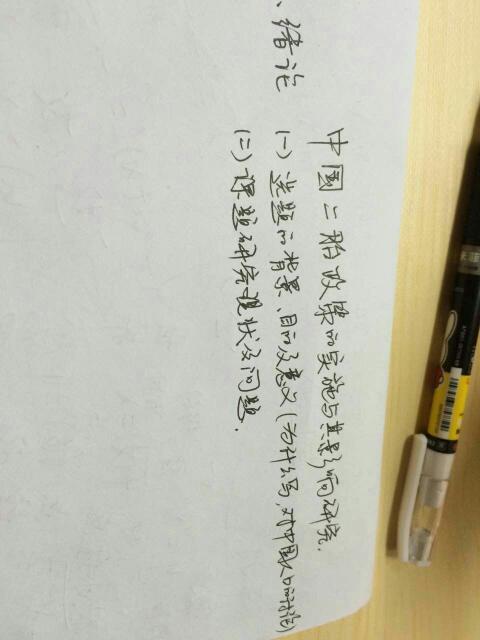 中国二胎政策的实施与其影响研究.
、绪论
(一) 选题的背景、目的及意义(为什么写,对中国人口的讨论)
(二) 课题研究现状及问题.